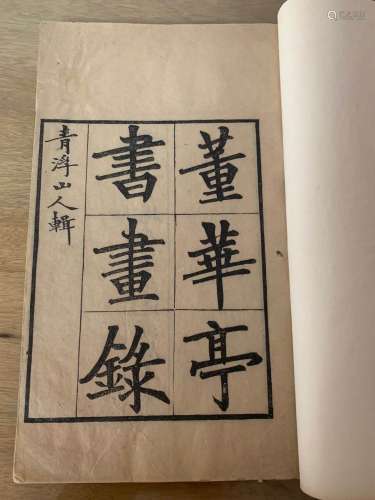 董華亭
書畫錄
青浮山人輯